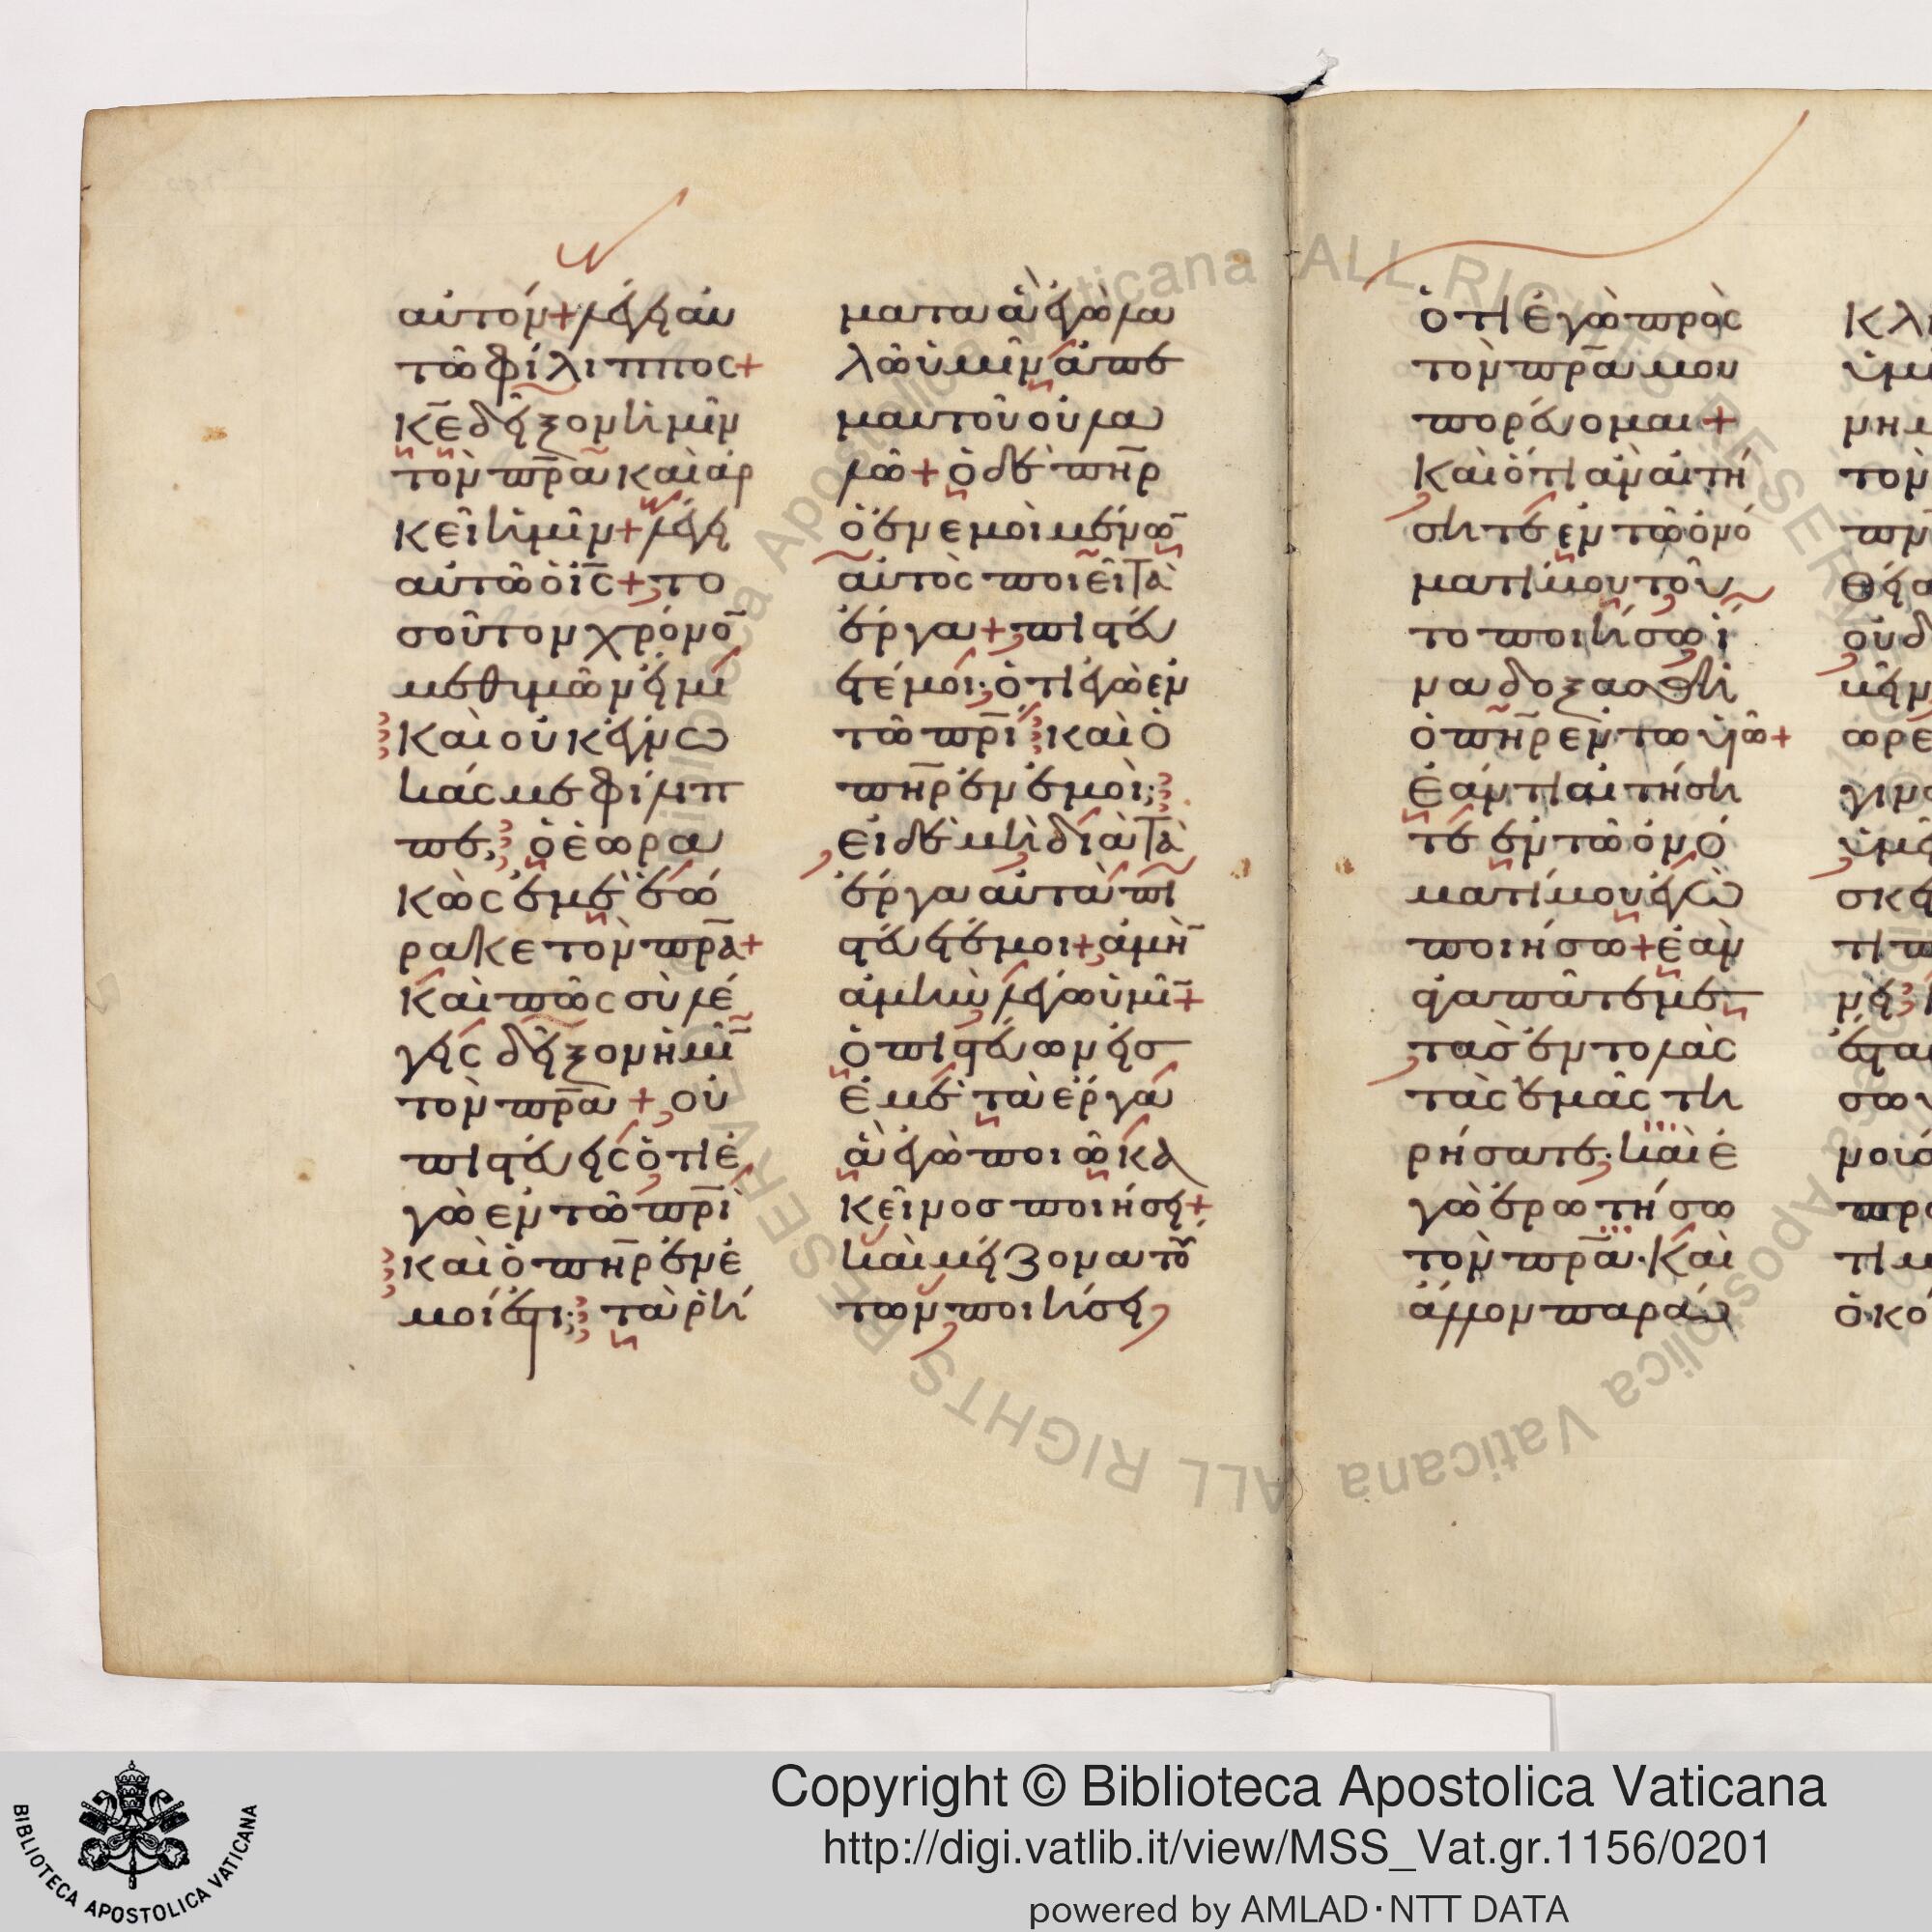 αὐτόν + λέγει αὐ
τῶ φίλιππος +
κ̅ε̅ δεῖξον ἡμῖν
τὸν π̅ρ̅α̅ καὶ ἀρ
κεῖ ἡμῖν + λέγει
αὐτῶ ὁ ι̅ς̅ + το
σοῦτον χρόνο̅
μεθ' ὑμῶν εἰμι
καὶ οὐκ ἔγνω
κάς με φίλιπ
πε; ὁ ἑωρα
κὼς ἐμὲ ἑώ
ρακε τὸν π̅ρ̅α̅ +
Καὶ πῶς σὺ λέ
γεις δεῖξον ἡμῖ̅
τὸν π̅ρ̅α̅ + οὐ
πιστεύεις ὅτι ἐ
γὼ ἐν τῶ π̅ρ̅ι̅
καὶ ὁ π̅η̅ρ̅ ἐν ἐ
μοί ἐστι; τὰ ῥή
ματα ἃ ἐγὼ λα
λῶ ὑμῖν ἀπ' ἐ
μαυτοῦ οὐ λα
λῶ + ὁ δὲ π̅η̅ρ̅
ὁ ἐν ἐμοὶ μένω̅
αὐτὸς ποιεῖ τὰ
ἔργα + πιστεύ
ετέ μοι· ὅτι ἐγὼ ἐν
τῶ π̅ρ̅ι̅ καὶ ὁ
π̅η̅ρ̅ ἐν ἐμοί;
εἰ δὲ μὴ διὰ τὰ
ἔργα αὐτὰ πι
στεύετέ μοι + ἀμὴ̅
ἀμὴν λέγω ὑμῖ̅ +
ὁ πιστεύων εἰς
ἐμὲ τὰ ἔργα
ἃ ἐγὼ ποιῶ κἀ
κεῖνος ποιήσει +
καὶ μείζονα τού
των ποιήσει
ὅτι ἐγὼ πρὸς
τὸν π̅ρ̅α̅ μου
πορεύομαι +
Καὶ ὅτι ἂν αἰτή
σητε ἐν τῶ ὀνό
ματί μου τοῦ
το ποιήσω ἵ
να δοξασθῆ
ὁ π̅η̅ρ̅ ἐν τω υἱῶ +
Ἐάν τι αἰτήση
τε ἐν τῶ ὀνό
ματί μου ἐγὼ
ποιήσω + ἐὰν
ἀγαπᾶτέ με
τὰς ἐντολὰς
τὰς ἐμὰς τη
ρήσατε· καὶ ἐ
γὼ ἐρωτήσω
τὸν π̅ρ̅α̅· Καὶ
ἄλλον παρά
Copyright © Biblioteca Apostolica Vaticana
http://digi.vatlib.it/view/MSS_Vat.gr.1156/0201
powered by AMLAD·NTT DATA
BIBLIOTECA APOSTOLICA VATICANA